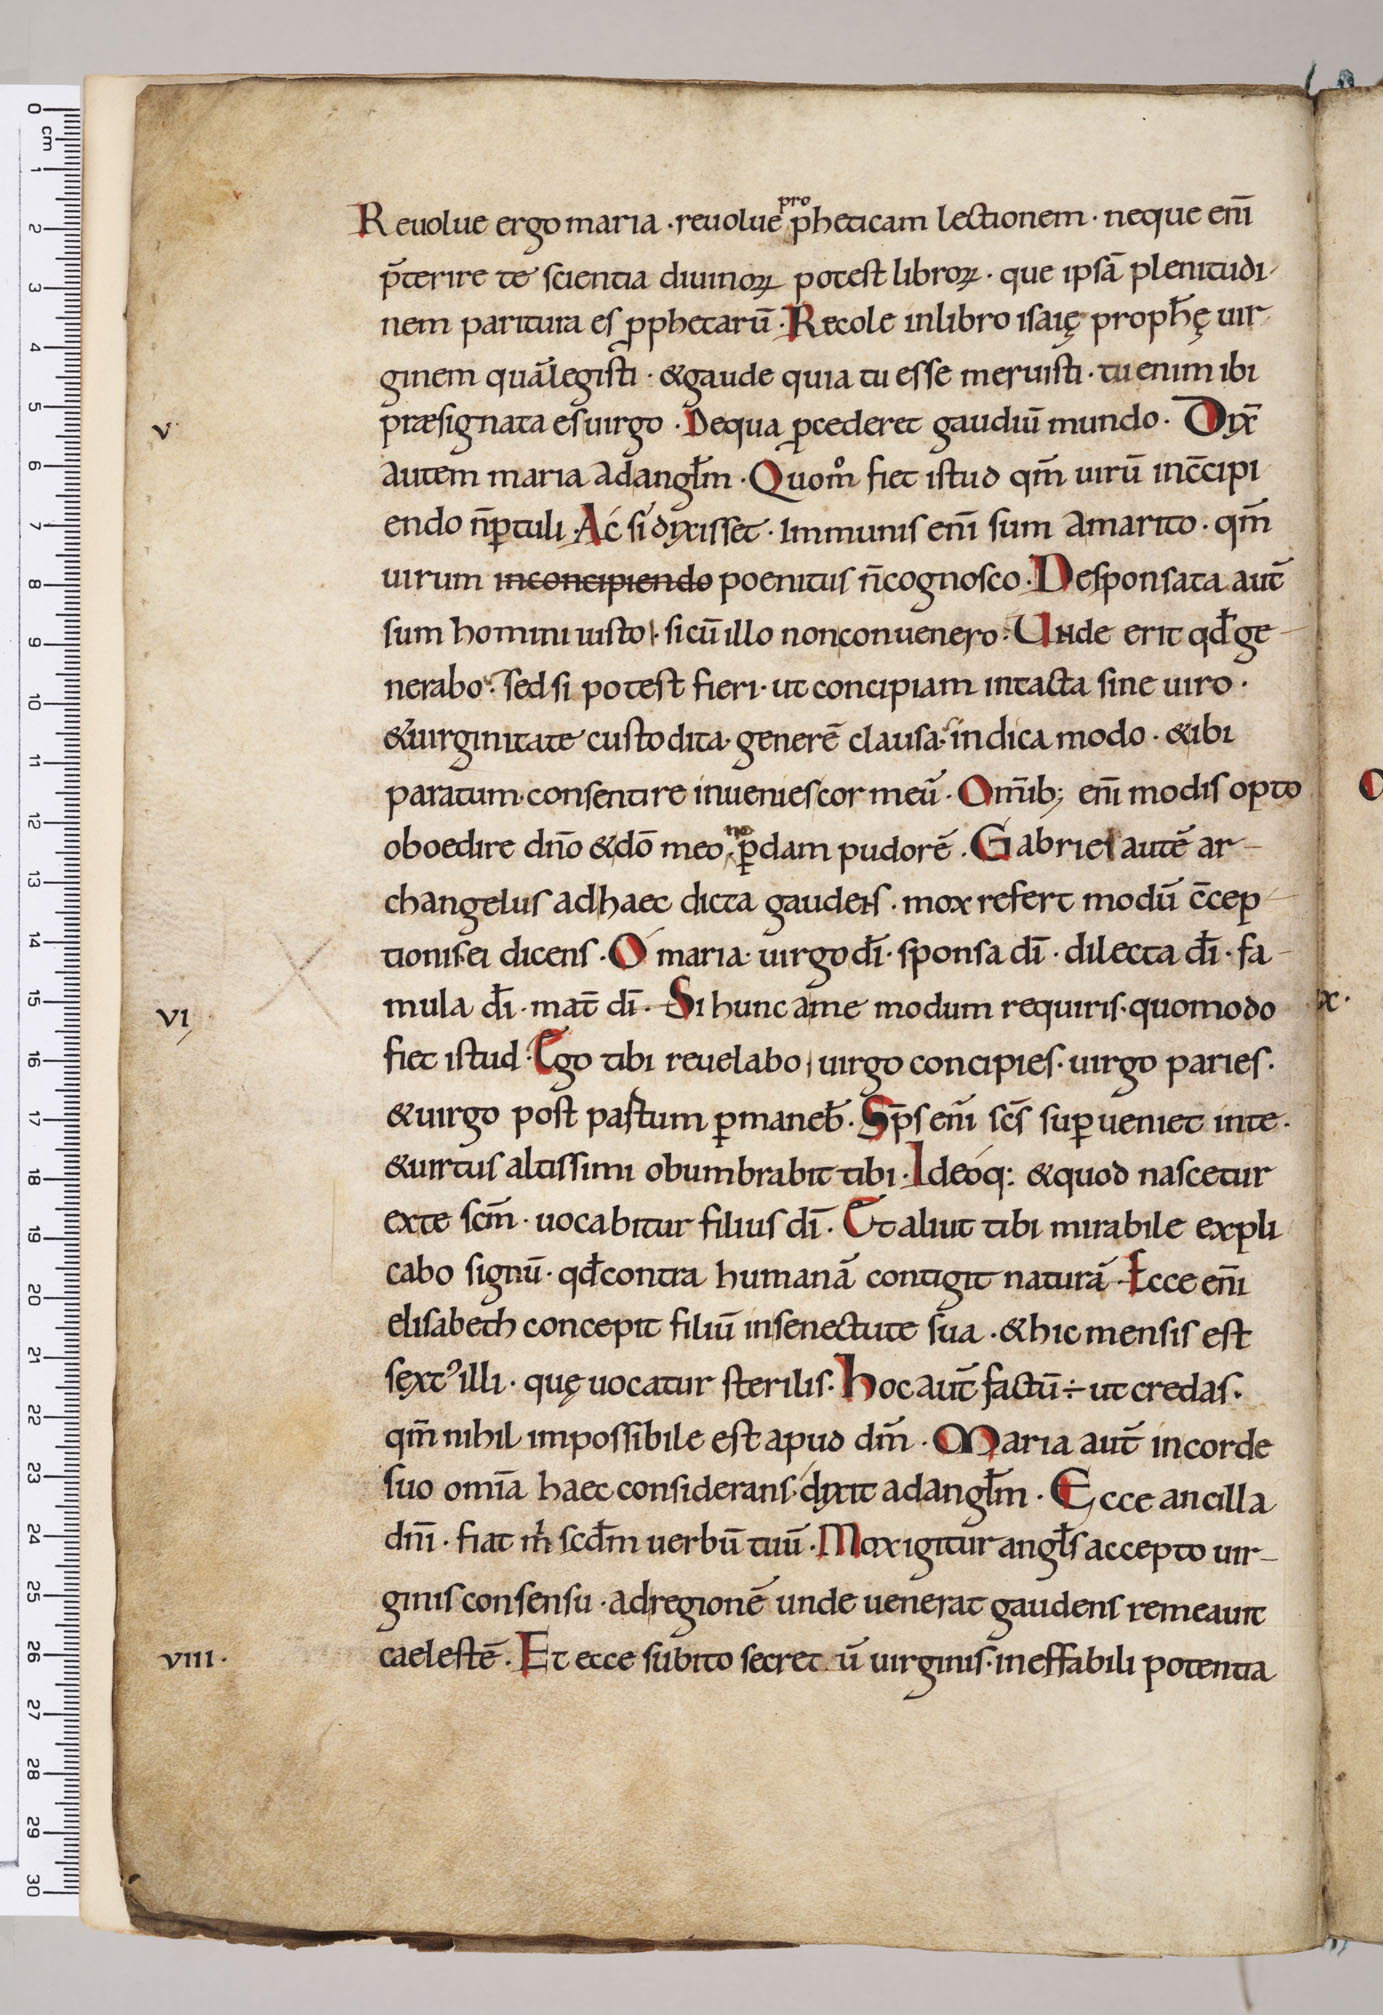 Reuolue ergo maria · reuolue propheticam lectionem · neque enī
p̄terire te scientia diuinoꝝ potest libroꝝ · que ipsā plenitudi-
nem paritura es ꝓphetarū · Recole inlibro isaię proph̄ę uir
ginem quā legisti · &gaude quia tu esse meruisti · tu enim ibi
v
præsignata es uirgo · Dequa ꝓcederet gaudiū mundo · Dix̄
autem maria adangl̄m · Quom̊ fiet istud qm̄ uirū inc̄cipi
endo n̄ ꝑtuli · Ac si dixisset · Immunis enī sum amarito · qm̄
uirum inconcipiendo poenitus n̄ cognosco · Desponsata aut̄
sum homini iusto · si cū illo nonconuenero · Unde erit qd̄ ge-
nerabo · sed si potest fieri · ut concipiam intacta sine uiro ·
&uirginitate custodita · generē clausa · indica modo · &ibi
paratum · consentire inuenies cor meū · Om̄ib; enī modis opto
oboedire dn̄o &dō meo · no ꝑdam pudorē · Gabriel autē ar-
changelus adhaec dicta gaudens · mox refert modū c̄cep-
tionis · ei dicens · O maria · uirgo dī · sponsa dī · dilecta dī · fa-
vi
mula dī · mat̄ dī · Si hunc ame modum requiris · quomodo
fiet istud · Ego tibi reuelabo · uirgo concipies · uirgo paries ·
&uirgo post partum ꝑmaneb̄ · Sp̄s enī sc̄s suꝑueniet inte ·
&uirtus altissimi obumbrabit tibi · Ideoq: &quod nascetur
exte scm̄ · uocabitur filius dī · Et aliut tibi mirabile expli
cabo signū · qd̄ contra humanā contigit naturā · Ecce enī
elisabeth concepit filiū insenectute sua · &hic mensis est
sęxt᾿ illi · quę uocatur sterilis · hoc aut̄ factū ÷ ut credas ·
qm̄ nihil impossibile est apud dm̄ · Maria aut̄ incorde
suo omīa haec considerans · dixit adangl̄m · Ecce ancilla
dnī · fiat m̍ scd̄m uerbū tuū · Mox igitur angl̄s accepto uir-
ginis consensu · adregionē unde uenerat gaudens remeauit
viii ·
caelestē · Et ecce subito secret ū uirginis · ineffabili potentia
x ·